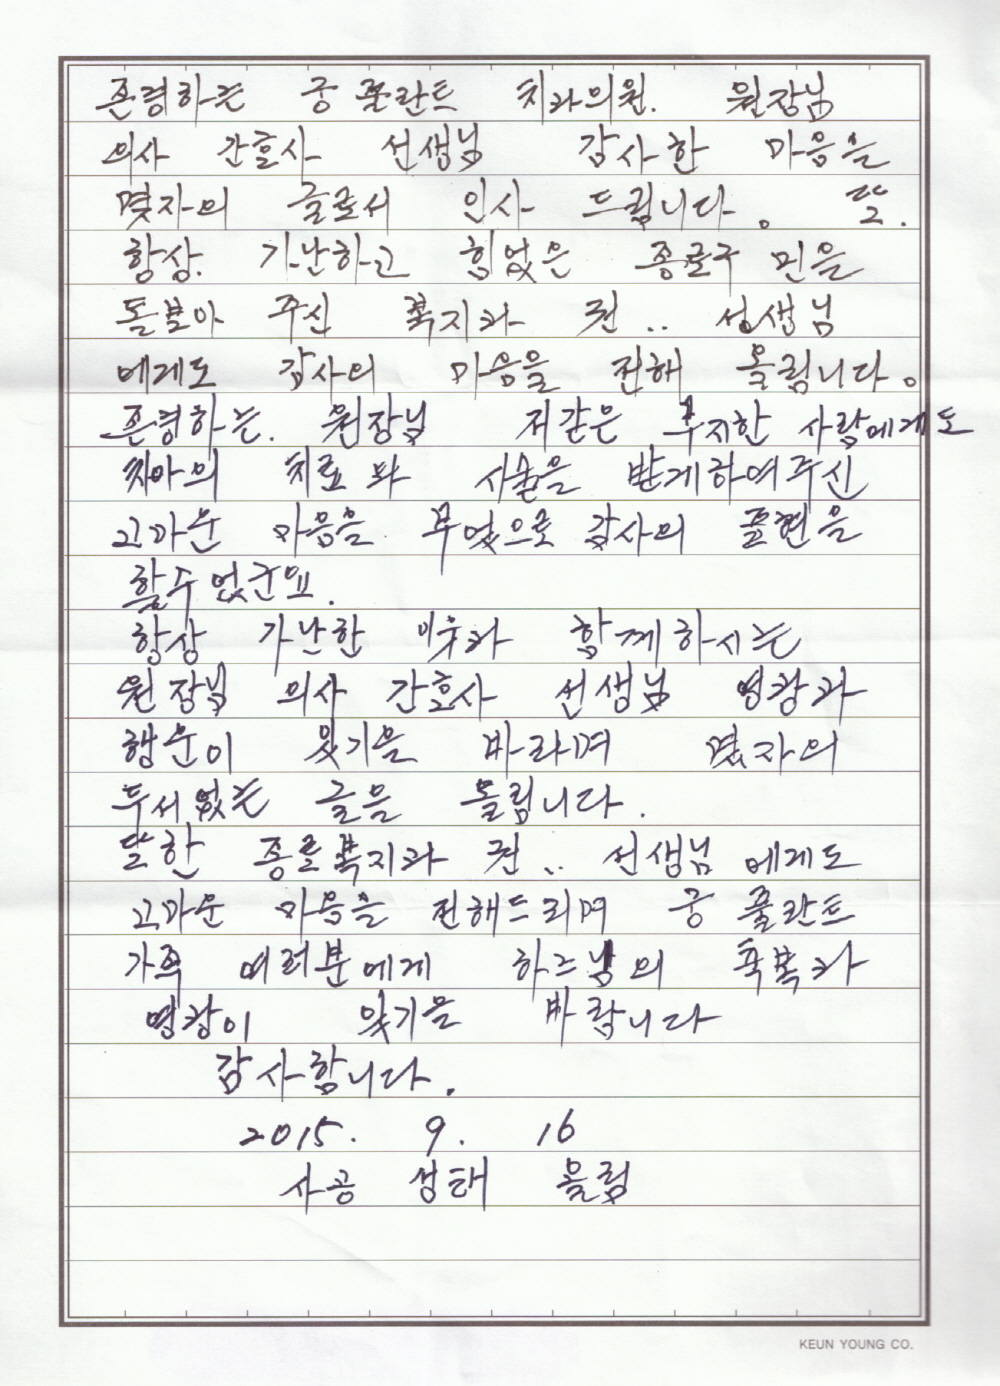 존경하는 궁플란트 치과의원. 원장님
의사 간호사 선생님 감사한 마음을
몇자의 글로서 인사 드립니다. 또.
항상. 가난하고 힘없은 종로구 민을
돌보아 주신 복지과 권.. 선생님
에게도 감사의 마음을 전해 올림니다.
존경하는. 원장님 저같은 무지한 사람에게도
치아의 치료와 시술을 받게하여주신
고마운 마음을 무엇으로 감사의 표현을
할수없군요.
항상 가난한 이웃과 함께하시는
원장님 의사 간호사 선생님 영광과
행운이 있기을 바라며 몇자의
두서없는 글을 올림니다.
또한 종로복지과 권.. 선생님 에게도
고마운 마음을 전해드리며 궁플란트
가족 여러분에게 하느님의 축복과
영광이 있기을 바람니다
감사함니다.
2015. 9. 16
사공 성태 올림
KEUN YOUNG CO.